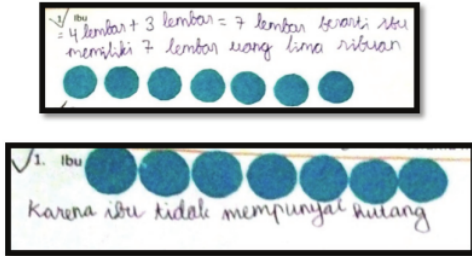 1. Ibu
= 4 lembar + 3 lembar = 7 lembar berarti ibu
memiliki 7 lembar uang lima ribuan
1. Ibu
Karena ibu tidak mempunyai hutang